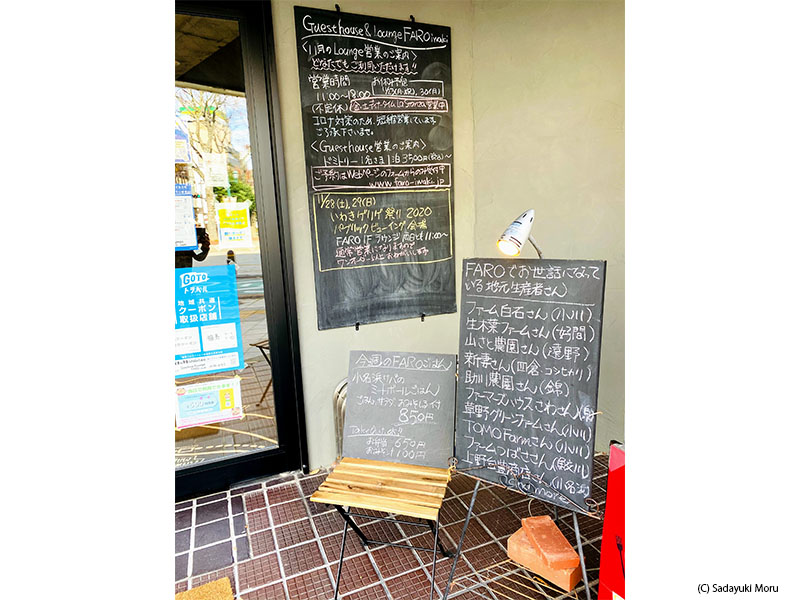 Guesthouse & Lounge FARO iwaki
<11月のLounge営業のご案内>
どなたでもご利用いただけます!!
営業時間
11:00~18:00
(不定休)
コロナ対策のため、短縮営業しています
ご了承下さいませ。
<Guesthouse営業のご案内>
ドミトリー 1名さま1泊 3500円(税込)~
ご予約はWebページのフォームからのみ受付中
www.faro-iwaki.jp
11/28(土), 29(日)
いわきゲリゲ祭り 2020
パブリックビューイング会場
FARO 1F ラウンジ 両日とも 11:00~
通常営業になりますので
ワンオーダー以上お願いします
GOTO
トラベル
地域共通
クーポン
取扱店舗
今週のFAROごはん
850円
お弁当 650円
おみそしる 100円
FAROでお世話になって
いる地元生産者さん
ファーム白石さん(小川)
生木葉ファームさん(好間)
山さと農園さん(遠野)
新妻さん(四倉 コシヒカリ)
助川農園さん(錦)
ファーマーズハウスさわさん
草野グリーンファームさん(小川)
TOMO Farmさん(小川)
ファームつばささん(鮫川)
上野台豊商店さん(小名浜)
and more
(C) Sadayuki Moru